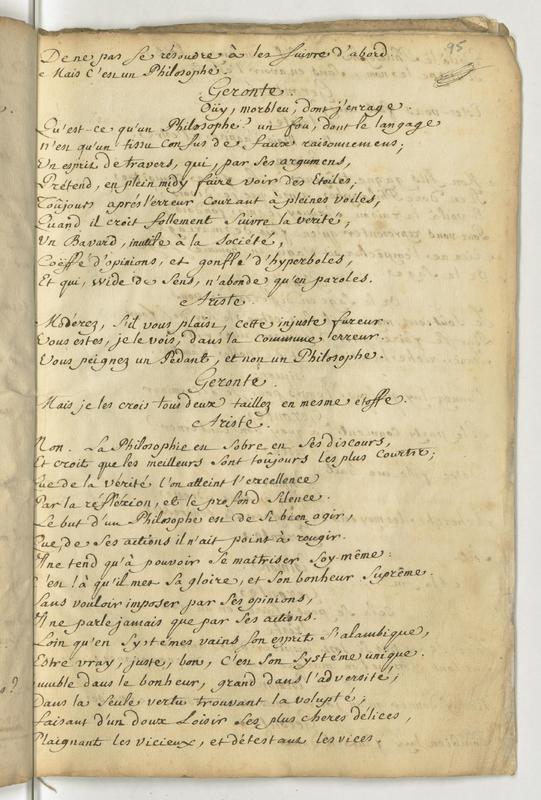 95
De ne pas se résoudre à les suivre d'abord.
Mais C'est un Philosophe.
Geronte.
Oüy, morbleu, dont j'enrage.
Qu'est-ce qu'un Philosophe? un fou, dont le langage
N'est qu'un tissu confus de faux raisonnemens;
Un esprit de travers, qui, par ses argumens,
Prétend, en plein midy faire voir des Etoiles;
Toujours après l'erreur Courant à pleines voiles,
Quand il croit follement suivre la vérité;
Un Bavard, inutile à la Société,
Coëffé d'opinions, et gonflé d'hyperboles,
Et qui, vuide de Sens, n'abonde qu'en paroles.
Ariste.
Modérez, S'il vous plaist, cette injuste fureur.
Vous estes, je le vois, dans la commune erreur.
Vous peignez un Pédant, et non un Philosophe.
Geronte.
Mais je les crois tous deux taillez en mesme étoffe.
Ariste.
Non. La Philosophie est Sobre en Ses discours,
Et croit que les meilleurs Sont toûjours les plus Courts;
Que de la vérité l'on atteint l'excellence
Par la réfléxion, et le profond Silence.
Le but d'un Philosophe est de Si bien agir,
Que, de Ses actions il n'ait point à rougir.
Il ne tend qu'à pouvoir Se maitriser Soy-même:
C'est là qu'il met Sa gloire, et Son bonheur Suprême.
Sans vouloir imposer par Ses opinions,
Il ne parle jamais que par Ses actions.
Loin qu'en Systémes vains Son esprit S'alambique,
Estre vray, juste, bon, C'est Son Systéme unique.
Humble dans le bonheur, grand dans l'adversité;
Dans la Seule vertu trouvant la volupté;
Faisant d'un doux Loisir Ses plus cheres délices,
Plaignant les vicieux, et détestant les vices.